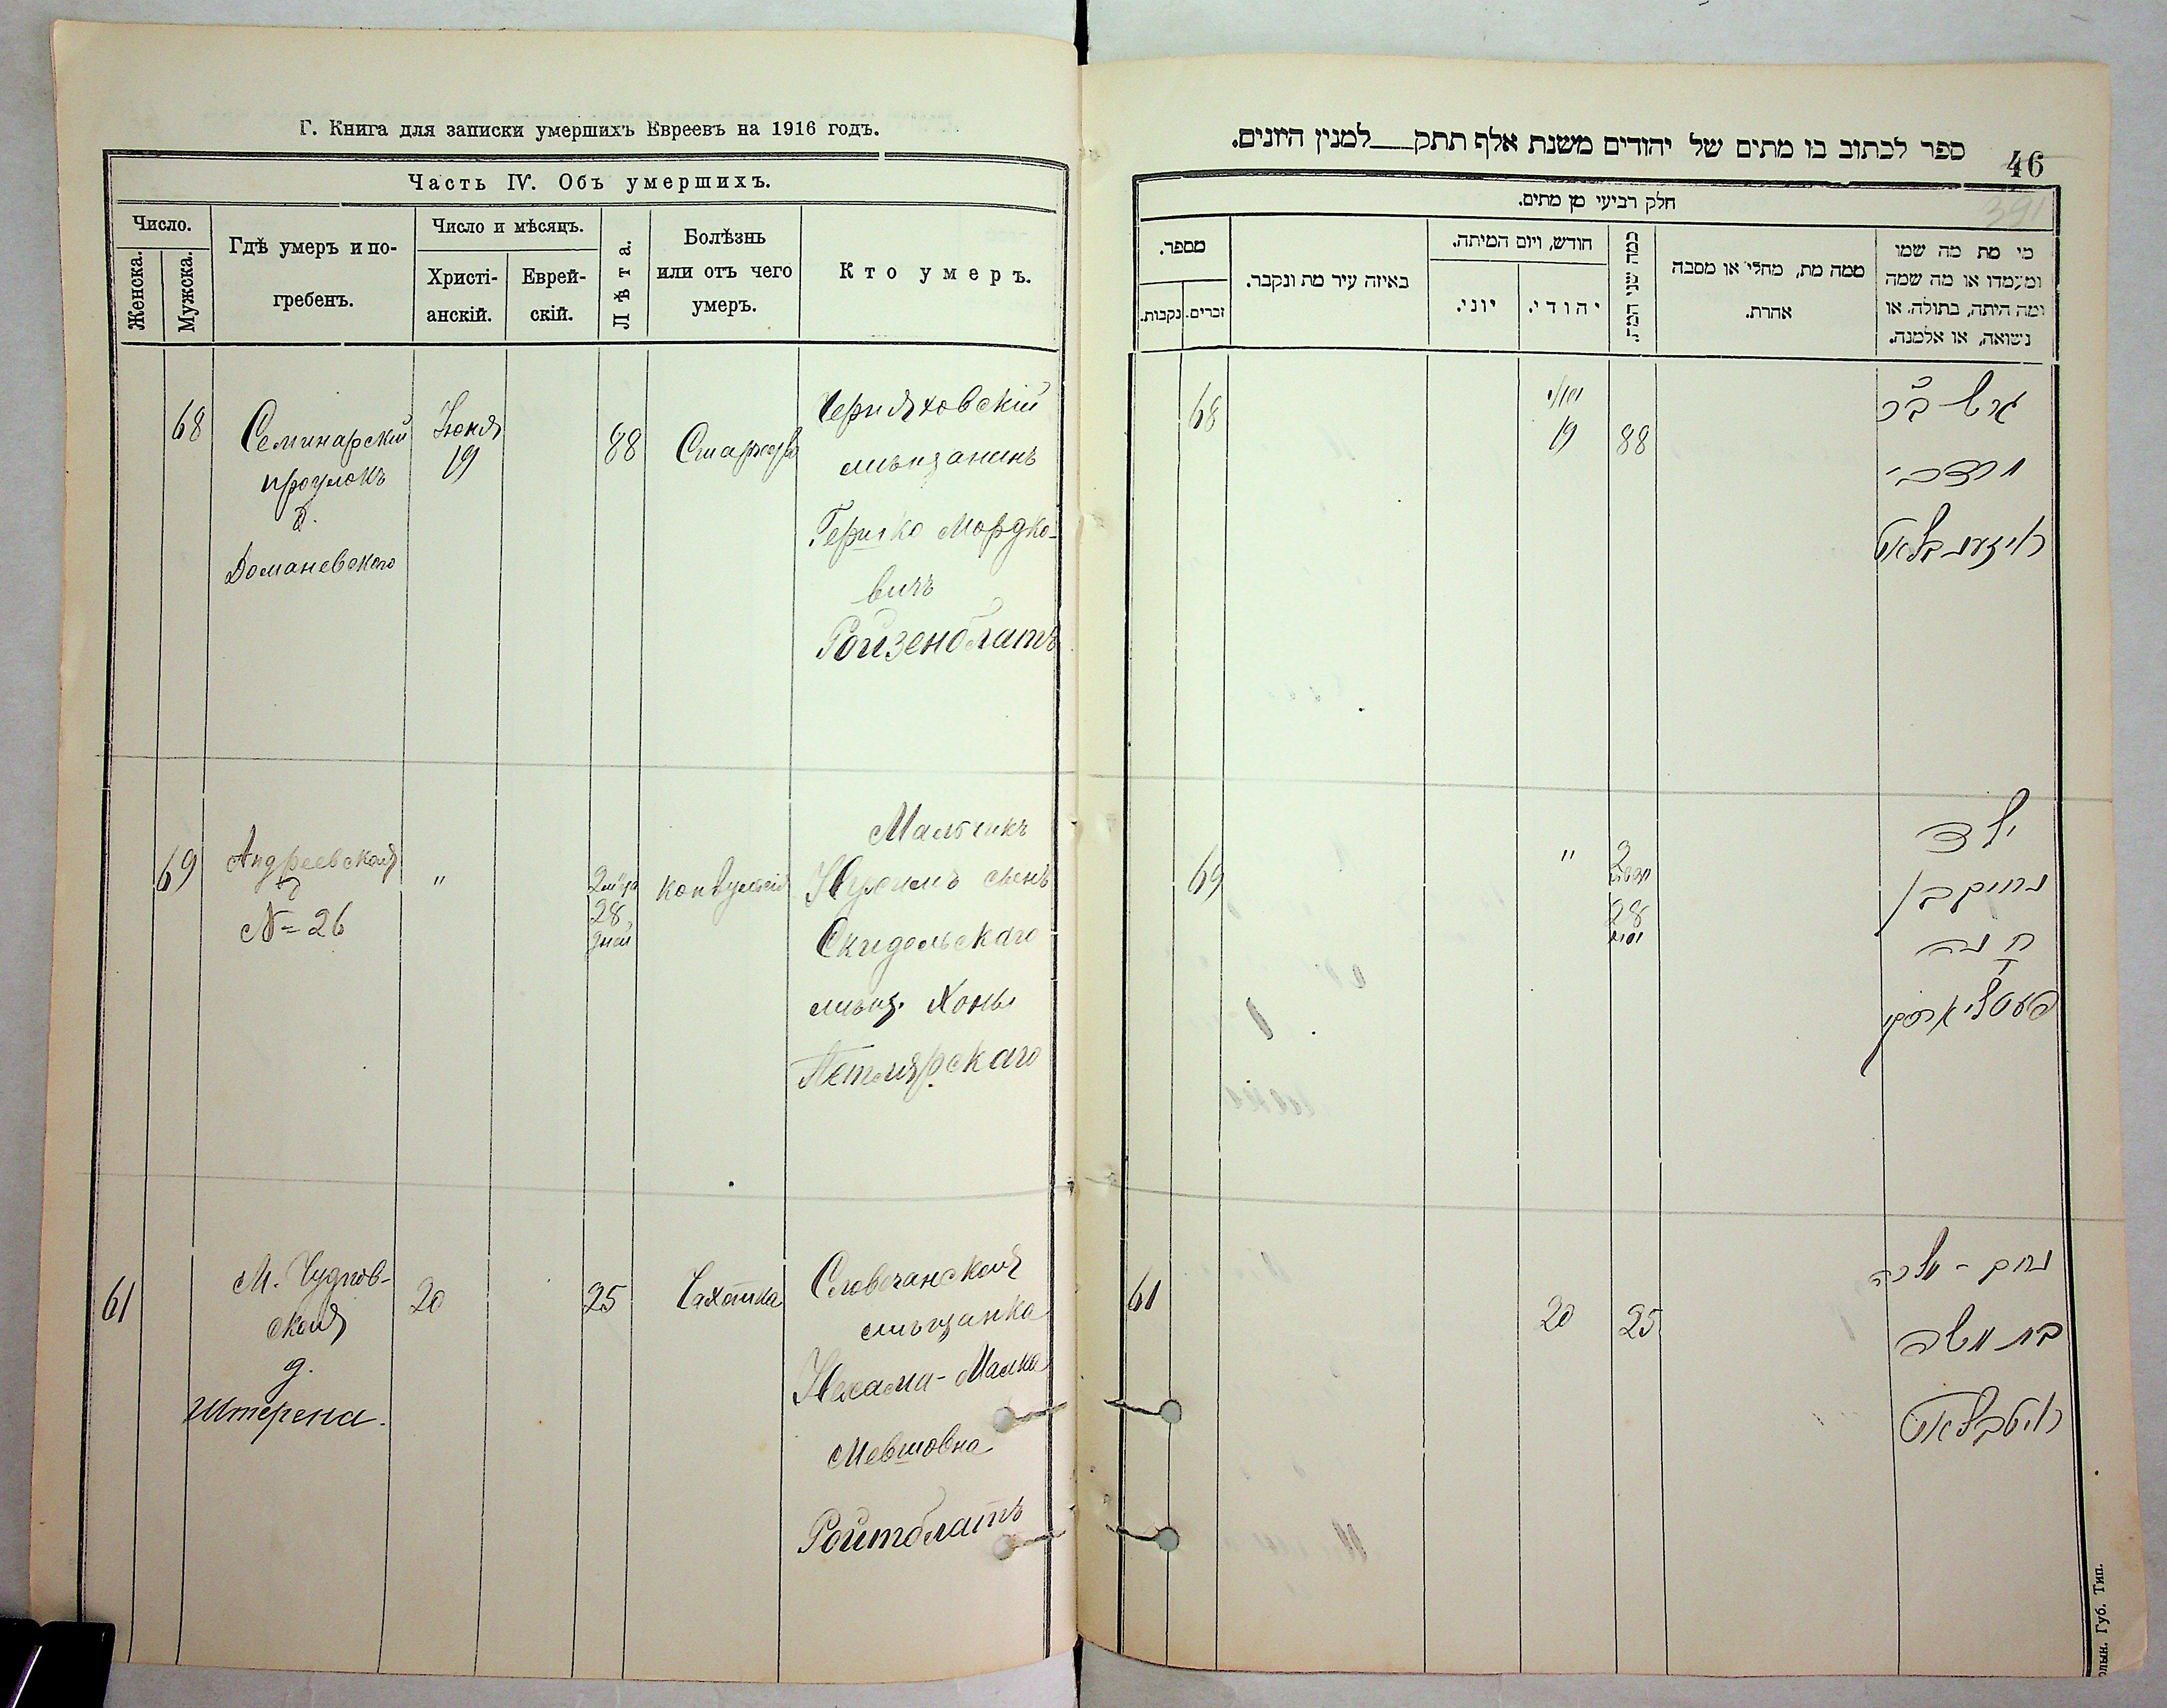 Г. Книга для записки умершихъ Евреевъ на 1916 годъ.
Часть IV. Объ умершихъ.
Число.
Женска.
Мужска.
Гдѣ умеръ и по-
гребенъ.
Число и мѣсяцъ.
Христі-
анскій.
Еврей-
скій.
Лѣта.
Болѣзнь
или отъ чего
умеръ.
Кто умеръ.
68
Семинарскій
проулокъ
д.
Домановского
Іюня
19
88
Старость
Черняховскій
мѣщанинъ
Гершко Мордко-
вичъ
Ройзенблатъ
69
Андреевская
№ 26
"
2 м-ца
28
дней
Мальчикъ
Нухимъ сынъ
Скидельскаго
мѣщ. Хоны
Петлярскаго
61
М. Чуднов-
ская
д.
Штерена.
20
25
Чахотка
Словечанская
мѣщанка
Нехама-Малка
Мевшовна
Ройтблатъ
ספר לכתוב בו מתים של יהודים משנת אלף תתק___למנין היונים.
46
391
חלק רביעי מן מתים.
מספר.
נקבות.
זכרים.
באיזה עיר מת ונקבר.
חודש, ויום המיתה.
יוני.
יהודי.
כמה שני המת.
ממה מת, מחלי או מסבה
אחרת.
מי מת מה שמו
ומעמדו או מה שמה
ומה היתה, בתולה, או
נשואה, או אלמנה.
68
יוני
19
88
גרש ב״ר
מרדכי
רויזענבלאט
69
"
2
חדשים
28
ימים
ילד
נחום בן
חנה
פעטליארסקי
61
20
25
נחמ - מלכה
בת משה
רויטבלאט
олын. Губ. Тип.